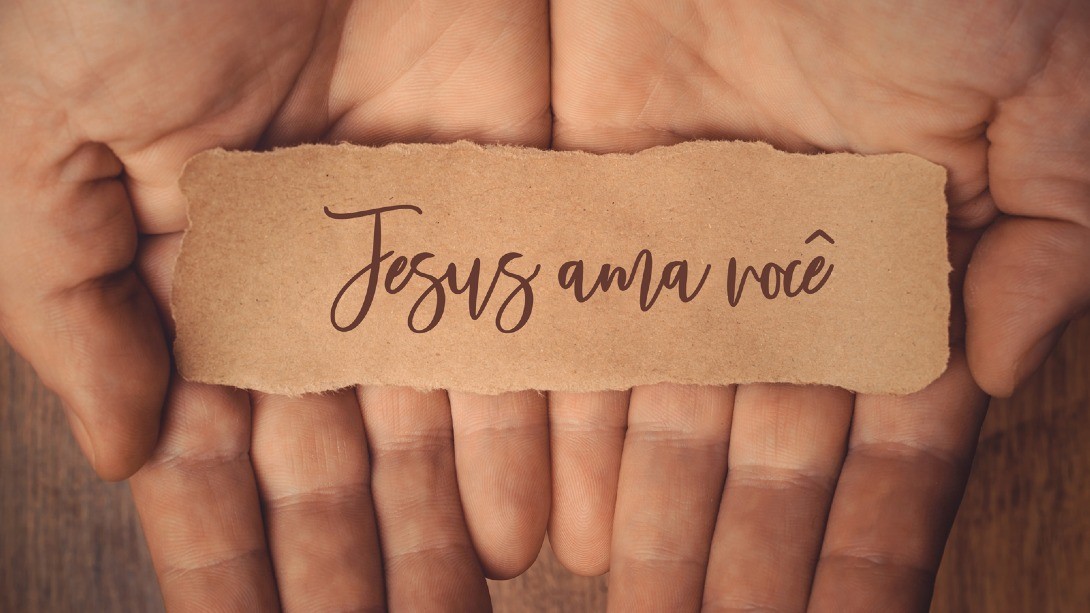 Jesus ama você